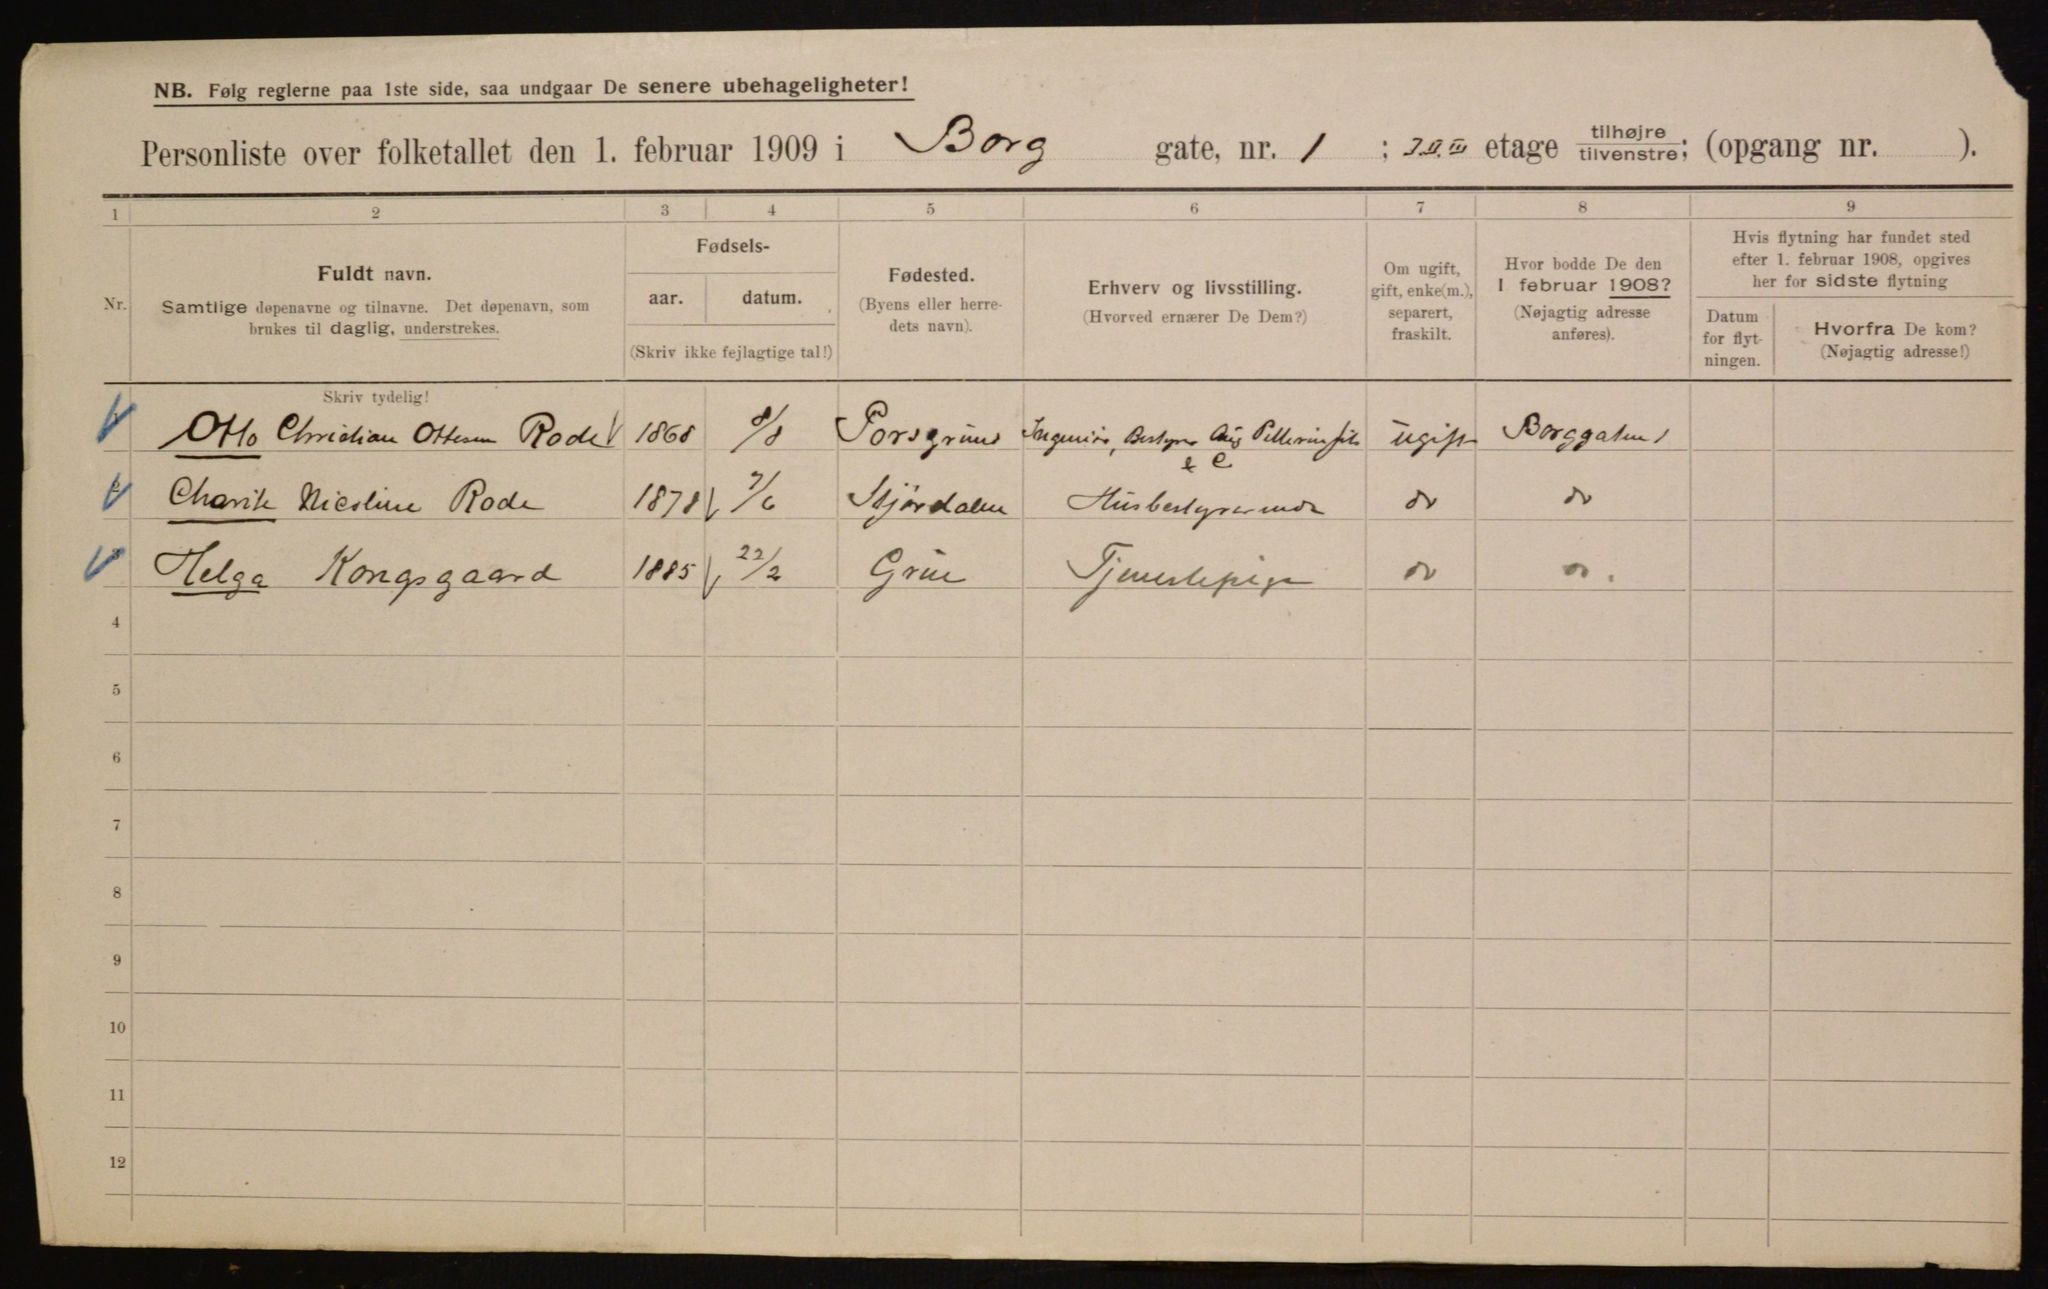 NB. Følg reglerne paa 1ste side, saa undgaar De senere ubehageligheter!
Personliste over folketallet den 1. februar 1909 i Borg gate, nr. 1 ; I. II. III etage tilhøjre tilvenstre; (opgang nr. ).
1 2 3 4 5 6 7 8 9
Nr.
Fuldt navn.
Samtlige døpenavne og tilnavne. Det døpenavn, som
brukes til daglig, understrekes.
Skriv tydelig!
Fødsels-
aar. datum.
(Skriv ikke fejlagtige tal!)
Fødested.
(Byens eller herre-
dets navn).
Erhverv og livsstilling.
(Hvorved ernærer De Dem?)
Om ugift,
gift, enke(m.),
separert,
fraskilt.
Hvor bodde De den
1 februar 1908?
(Nøjagtig adresse
anføres).
Hvis flytning har fundet sted
efter 1. februar 1908, opgives
her for sidste flytning
Datum
for flyt-
ningen.
Hvorfra De kom?
(Nøjagtig adresse!)
Otto Christian Ottesen Rode 1868 8/8 Porsgrund Ingeniør, Bestyrer Aug Pellerin fils ugift Borggaten 1
& C
Charite Nicoline Rode 1878 7/6 Stjørdalen Husbestyrerinde do do
3 Helga Kongsgaard 1885 22/2 Grue Tjenestepige do do.
4
5
6
7
8
9
10
11
12